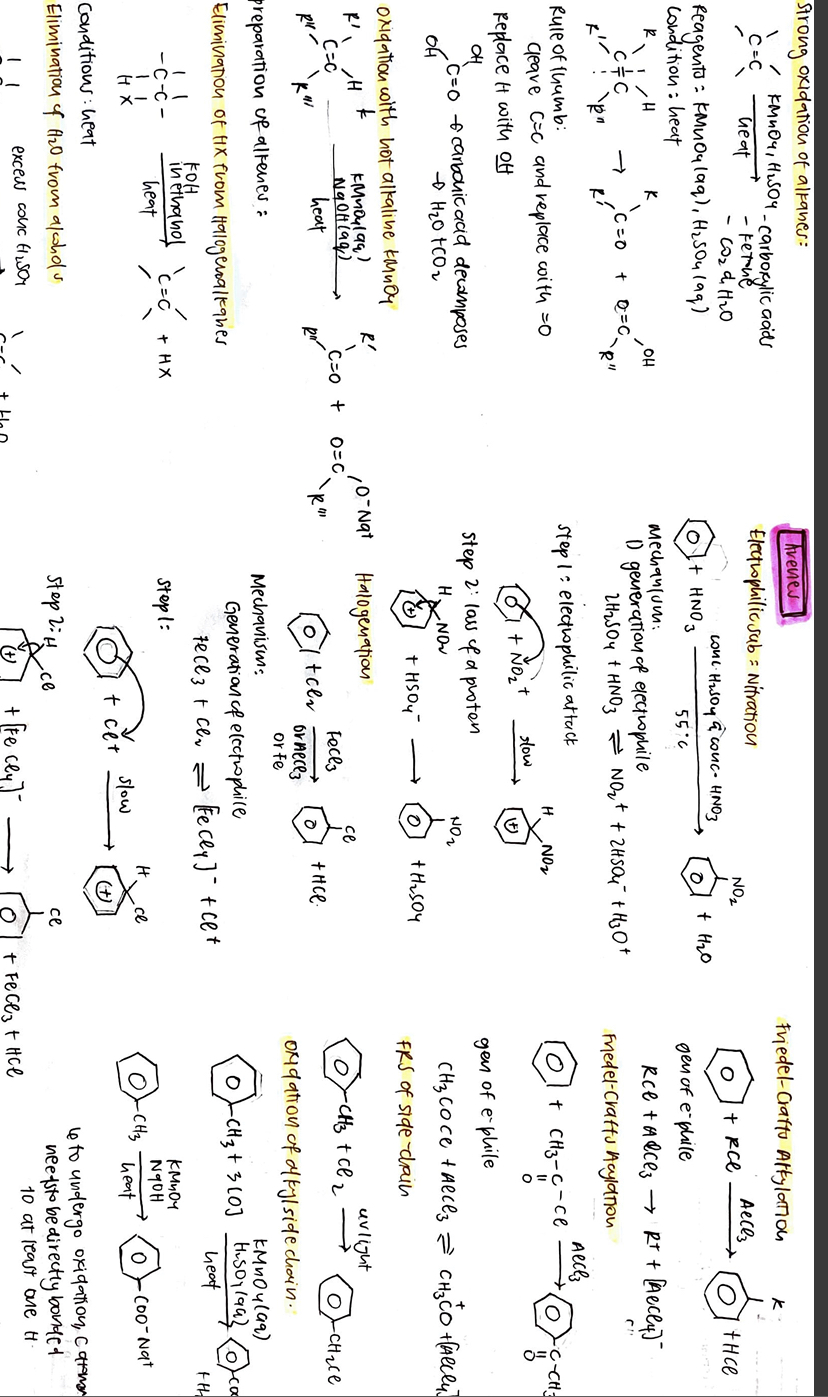 Strong oxidation of alkenes:
C=C
KMnO4, H2SO4
heat
- carboxylic acids
- ketone
- CO2 & H2O
Reagents = KMnO4(aq), H2SO4(aq)
condition = heat
R
H
C=C
R'
R"
→
R
C=O + O=C
OH
R'
R"
Rule of thumb:
cleave C=C and replace with =O
Replace H with OH
OH
C=O → carbonic acid decomposes
OH
→ H2O + CO2
Oxidation with hot alkaline KMnO4
R'
H
C=C
R"
R'''
KMnO4(aq)
NaOH(aq)
heat
R'
C=O + O=C
O-Na+
R"
R'''
preparation of alkenes:
Elimination of HX from Halogenoalkanes
-C-C-
H X
KOH
in ethanol
heat
C=C + HX
Conditions: heat
Elimination of H2O from alcohols
excess conc H2SO4
C=C + H2O
Arenes
Electrophilic sub = Nitration
+ HNO3
conc. H2SO4 & conc. HNO3
55°C
NO2
+ H2O
Mechanism:
1) generation of electrophile
2H2SO4 + HNO3 ⇌ NO2+ + 2HSO4- + H3O+
Step 1: electrophilic attack
+ NO2+
slow
H
NO2
(+)
Step 2: loss of a proton
H
NO2
(+)
+ HSO4-
→
NO2
+ H2SO4
Halogenation
+ Cl2
FeCl3
or AlCl3
or Fe
Cl
+ HCl
Mechanism:
Generation of electrophile
FeCl3 + Cl2 ⇌ [FeCl4]- + Cl+
Step 1:
+ Cl+
slow
H
Cl
(+)
Step 2:
H
Cl
(+)
+ [FeCl4]-
→
Cl
+ FeCl3 + HCl
Friedel-Crafts Alkylation
+ RCl
AlCl3
R
+ HCl
gen of e-phile
RCl + AlCl3 → R+ + [AlCl4]-
Friedel-Crafts Acylation
+ CH3-C-Cl
O
AlCl3
C-CH3
O
gen of e-phile
CH3COCl + AlCl3 ⇌ CH3CO+ + [AlCl4]
FRS of side-chain
CH3 + Cl2
uv light
CH2Cl
Oxidation of alkyl side chain.
CH3 + 3[O]
KMnO4(aq)
H2SO4(aq)
heat
CH3
KMnO4
NaOH
heat
COO-Na+
↳ to undergo oxidation, C atom
needs to be directly bonded
to at least one H